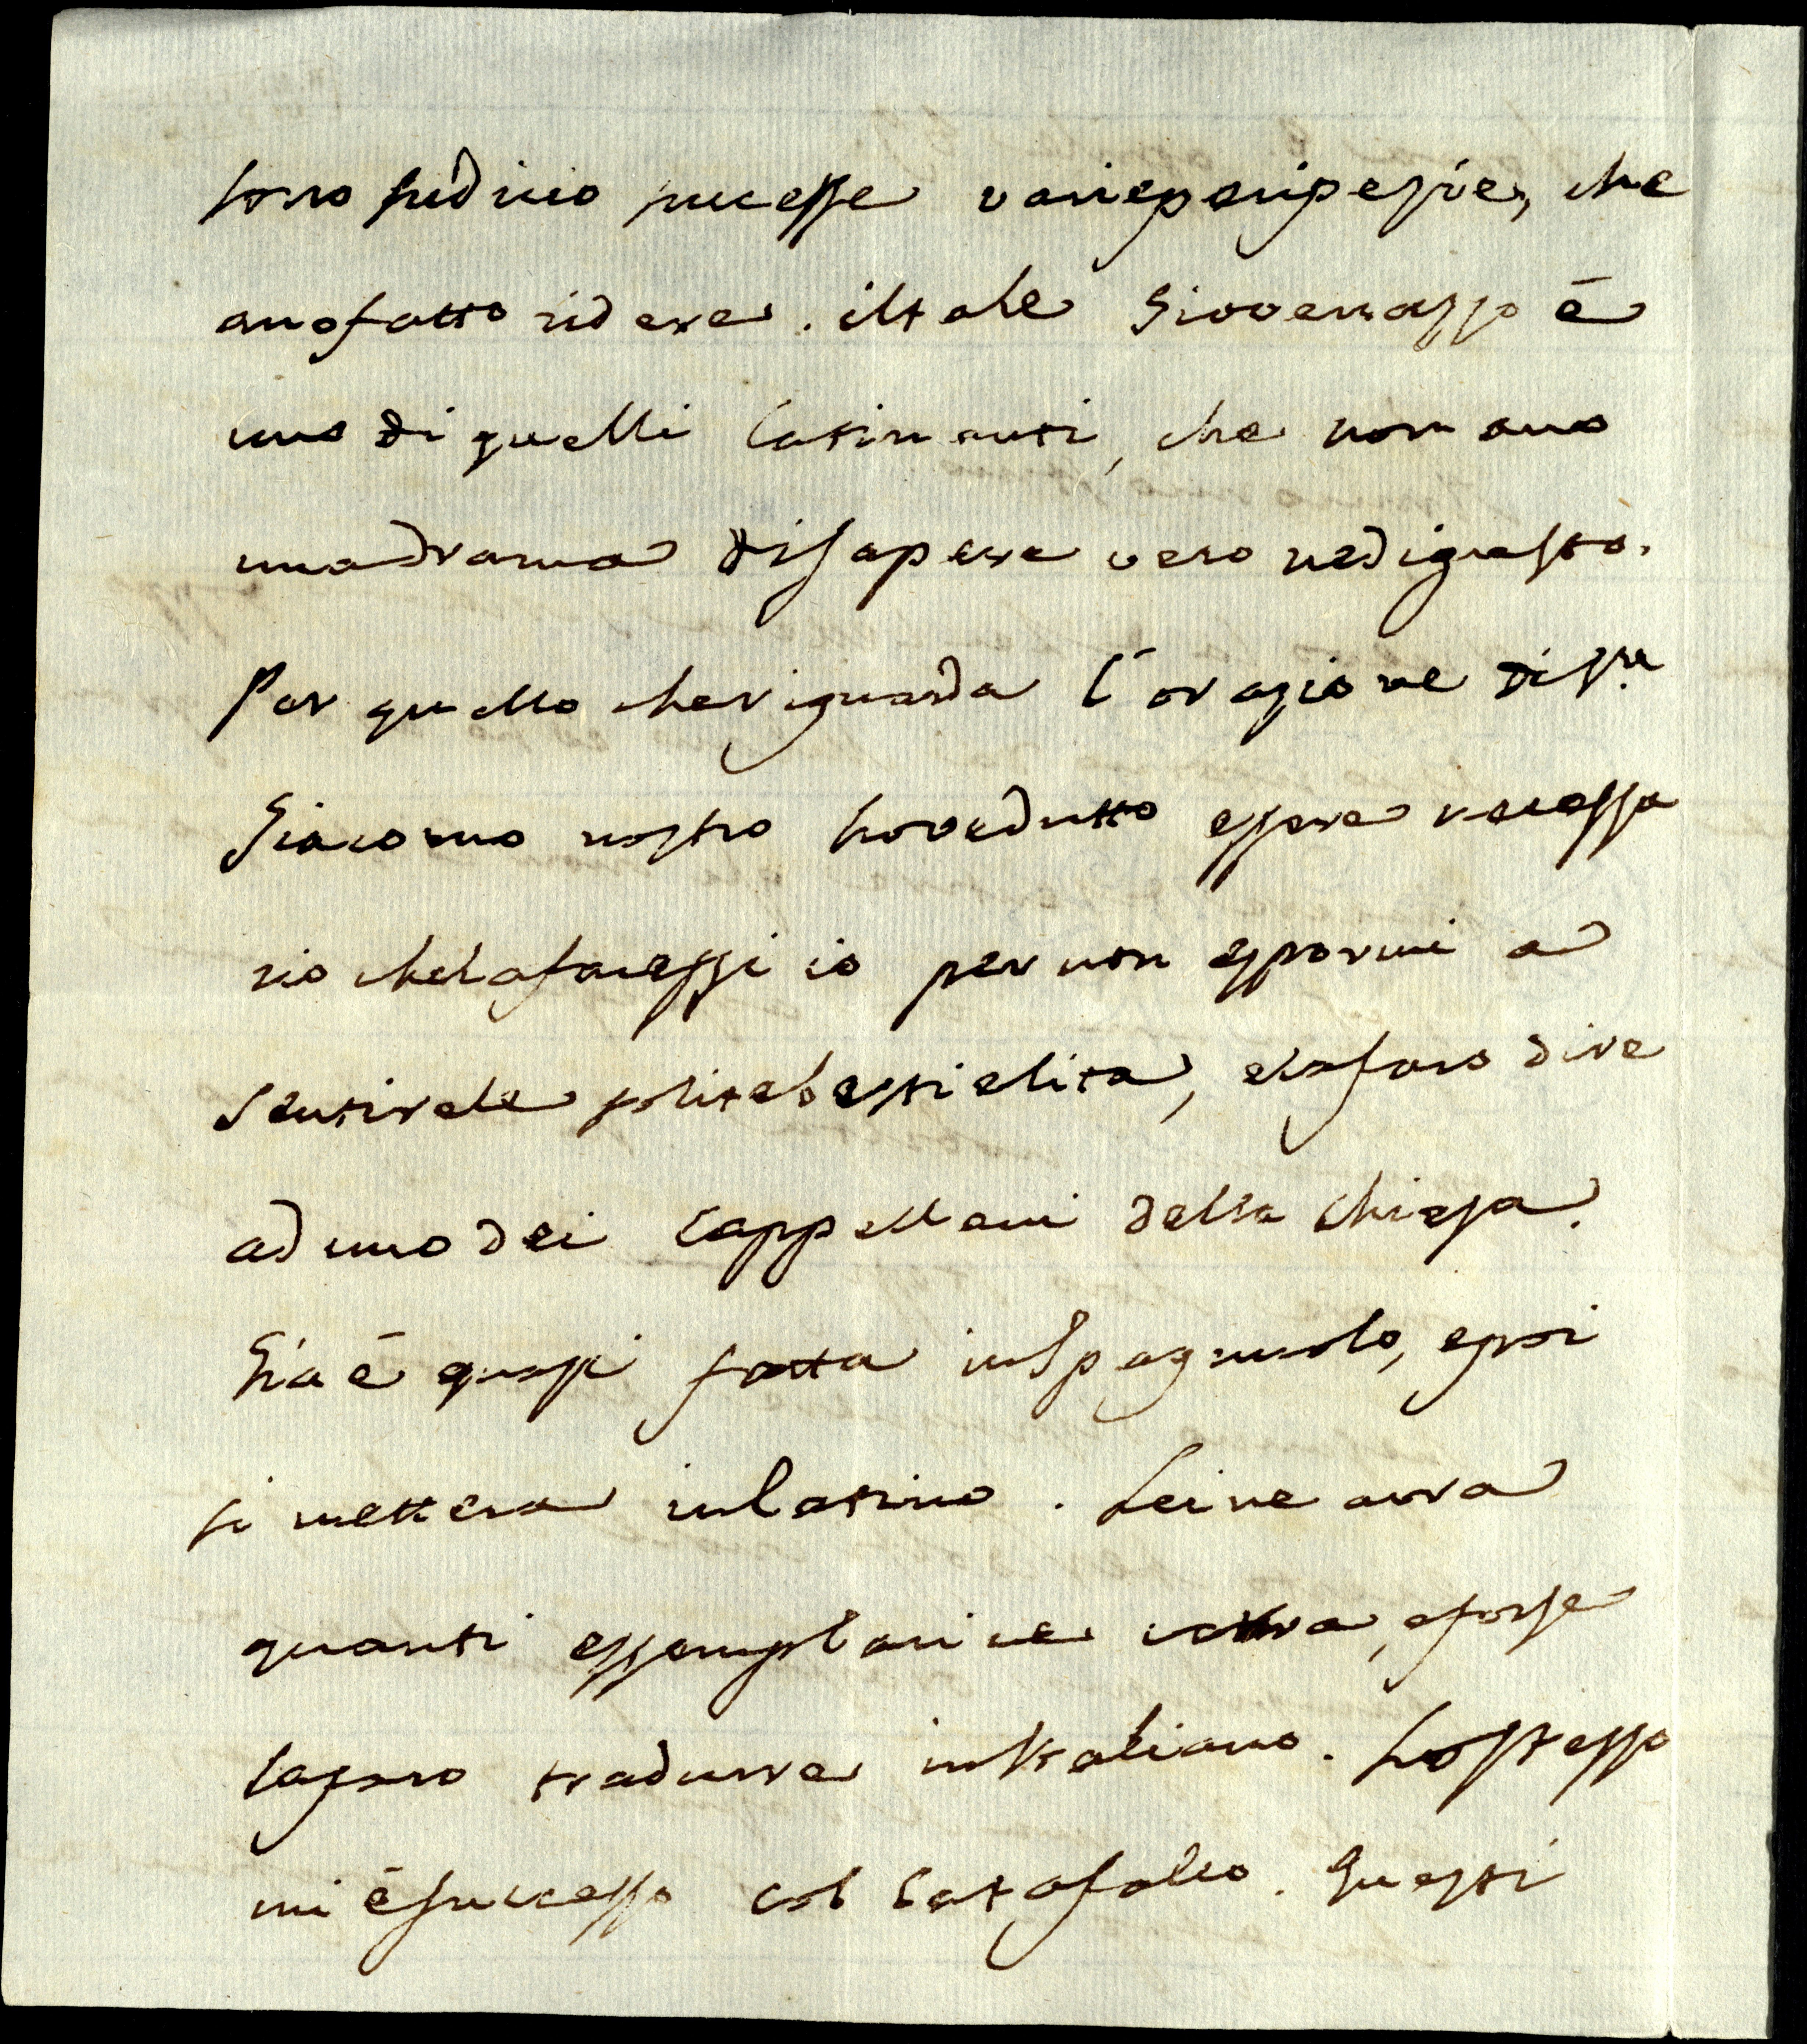 sono su di cio successe varie peripessie, che
ano fatto ridere. il tale Giovenazzo é
uno di quelli Latinanti, che non ano
una drama di sapere vero ne di gusto.
Per quello che riguarda l'orazione di S.n
Giacomo nostro ho vedutto essere necessa
rio che la facessi io per non espormi a
sentire le solite bestielita, e la faro dire
ad uno dei Cappellani della Chiesa.
Gia é quasi fatta in Spagnuolo, e poi
si mettera in latino. Lei ne avra
quanti essemplari ne vorra, e forse
la faro tradurre in Italiano. Lo stesso
mi é successo col Catafalco. Questi